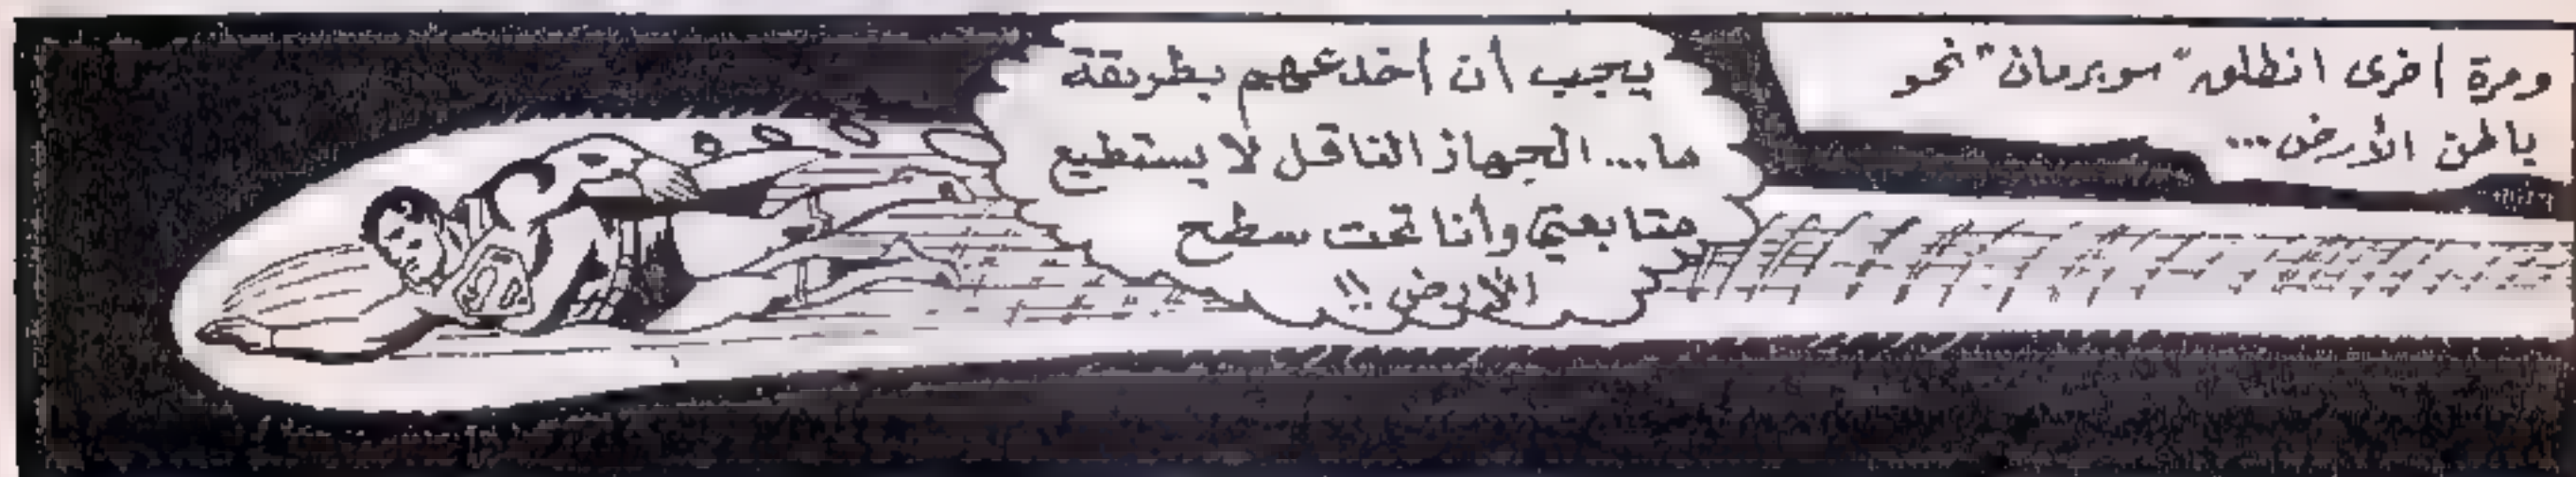 ومرة أخرى انطلق "سوبرمان" نحو
باطن الأرض...
يجب أن أخدعهم بطريقة
ما... الجهاز الناقل لا يستطيع
متابعتي وأنا تحت سطح
الأرض !!